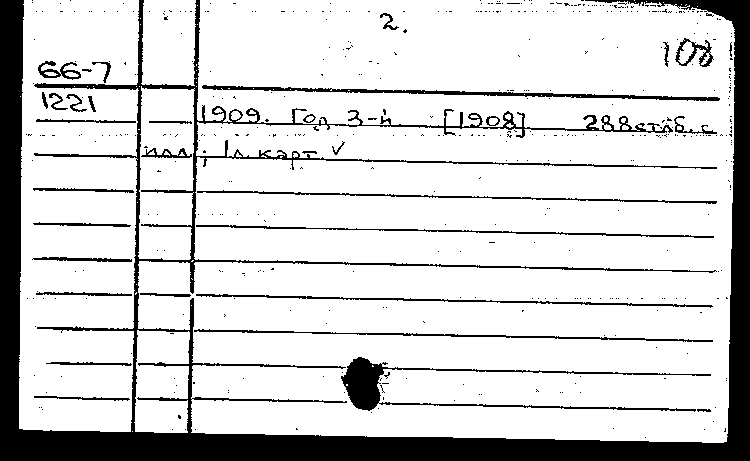 2.
108
66-7
1221
1909. Год 3-й [1908] 288 стлб. с
илл; 1 л. карт ✓